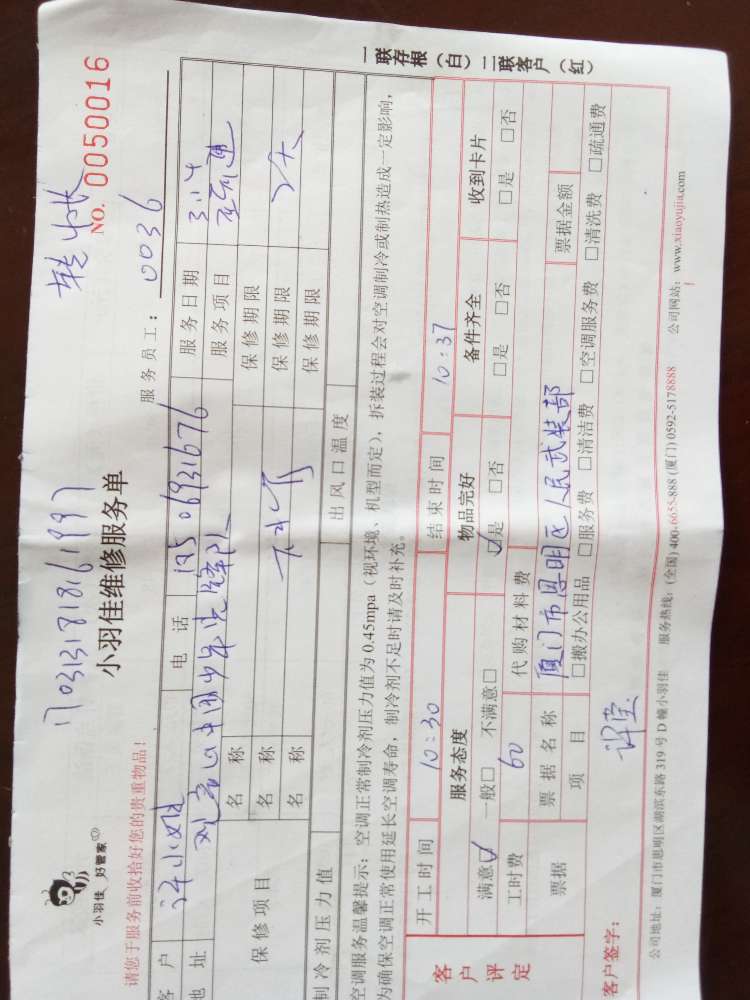 NO. 0050016
1703131818161997
小羽佳 好管家
小羽佳维修服务单
请您于服务前收拾好您的贵重物品！
服务员工：0036
客 户 许小姐 电 话 服务日期 3.14
地 址 服务项目
保修项目 名 称 保修期限
名 称 保修期限
名 称 保修期限
制冷剂压力值 出风口温度
空调服务温馨提示：空调正常制冷剂压力值为 0.45mpa（视环境、机型而定），拆装过程会对空调制冷或制热造成一定影响，
为确保空调正常使用延长空调寿命，制冷剂不足时请及时补充。
一联存根（白）二联客户（红）
客户评定
开工时间 10:30 结束时间 10:37
服务态度 物品完好 备件齐全 收到卡片
满意☑ 一般□ 不满意□ ☑是 □否 □是 □否 □是 □否
工时费 60 代购材料费
票据 票据名称 厦门市思明区人民武装部 票据金额
项 目 □搬办公用品 □服务费 □清洁费 □空调服务费 □清洗费 □疏通费
客户签字：
公司地址：厦门市思明区湖滨东路 319 号 D 幢小羽佳 服务热线：(全国) 400-6655-888 (厦门) 0592-5178888 公司网站：www.xiaoyujia.com